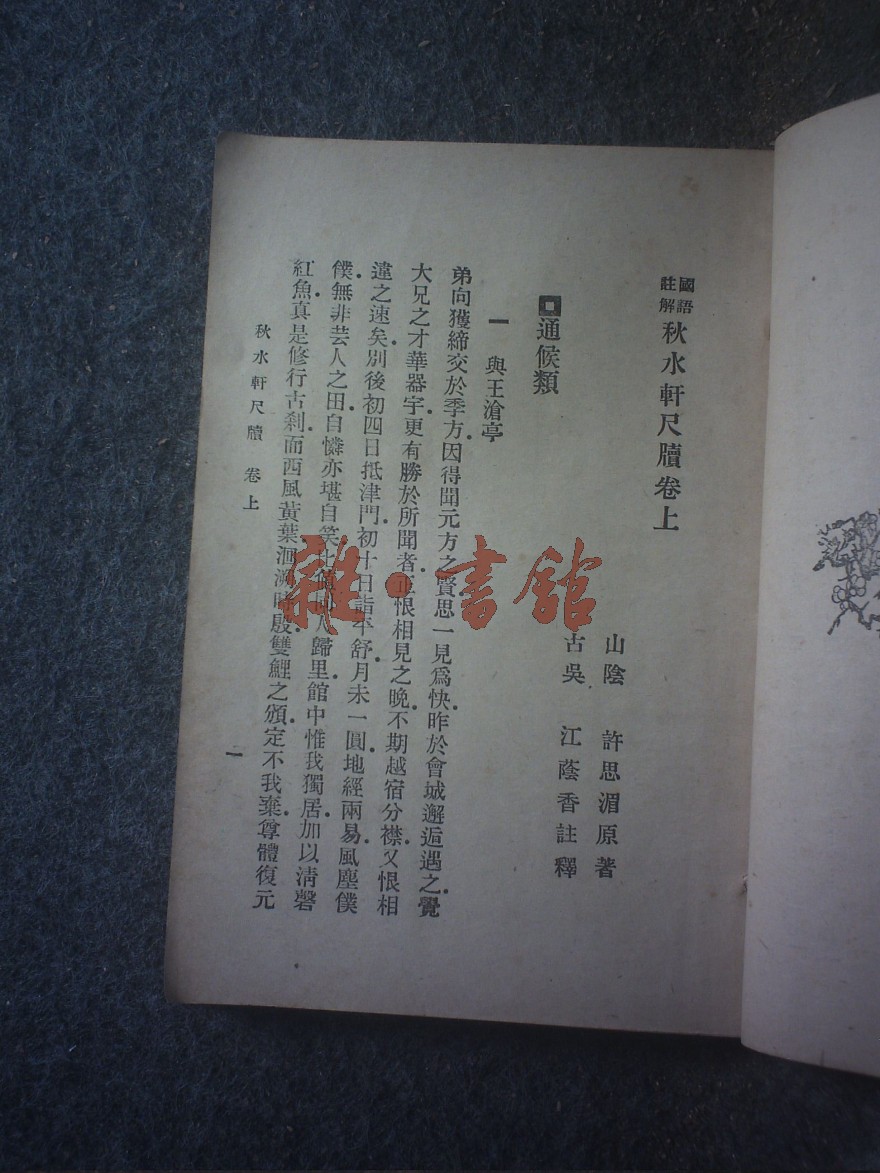 國語註解 秋水軒尺牘卷上
山陰 許思湄原著
古吳 江蔭香註釋
通候類
一 與王滄亭
弟向獲締交於季方因得聞元方之賢思一見爲快昨於會城邂逅遇之覺
大兄之才華器宇更有勝於所聞者正恨相見之晚不期越宿分襟又恨相
違之速矣別後初四日抵津門初十日詣平舒月未一圓地經兩易風塵僕
僕無非芸人之田自憐亦堪自笑人歸里館中惟我獨居加以清磬
紅魚真是修行古刹而西風黃葉洄溯時殷雙鯉之頒定不我棄尊體復元
秋水軒尺牘 卷上
一
雜·書館